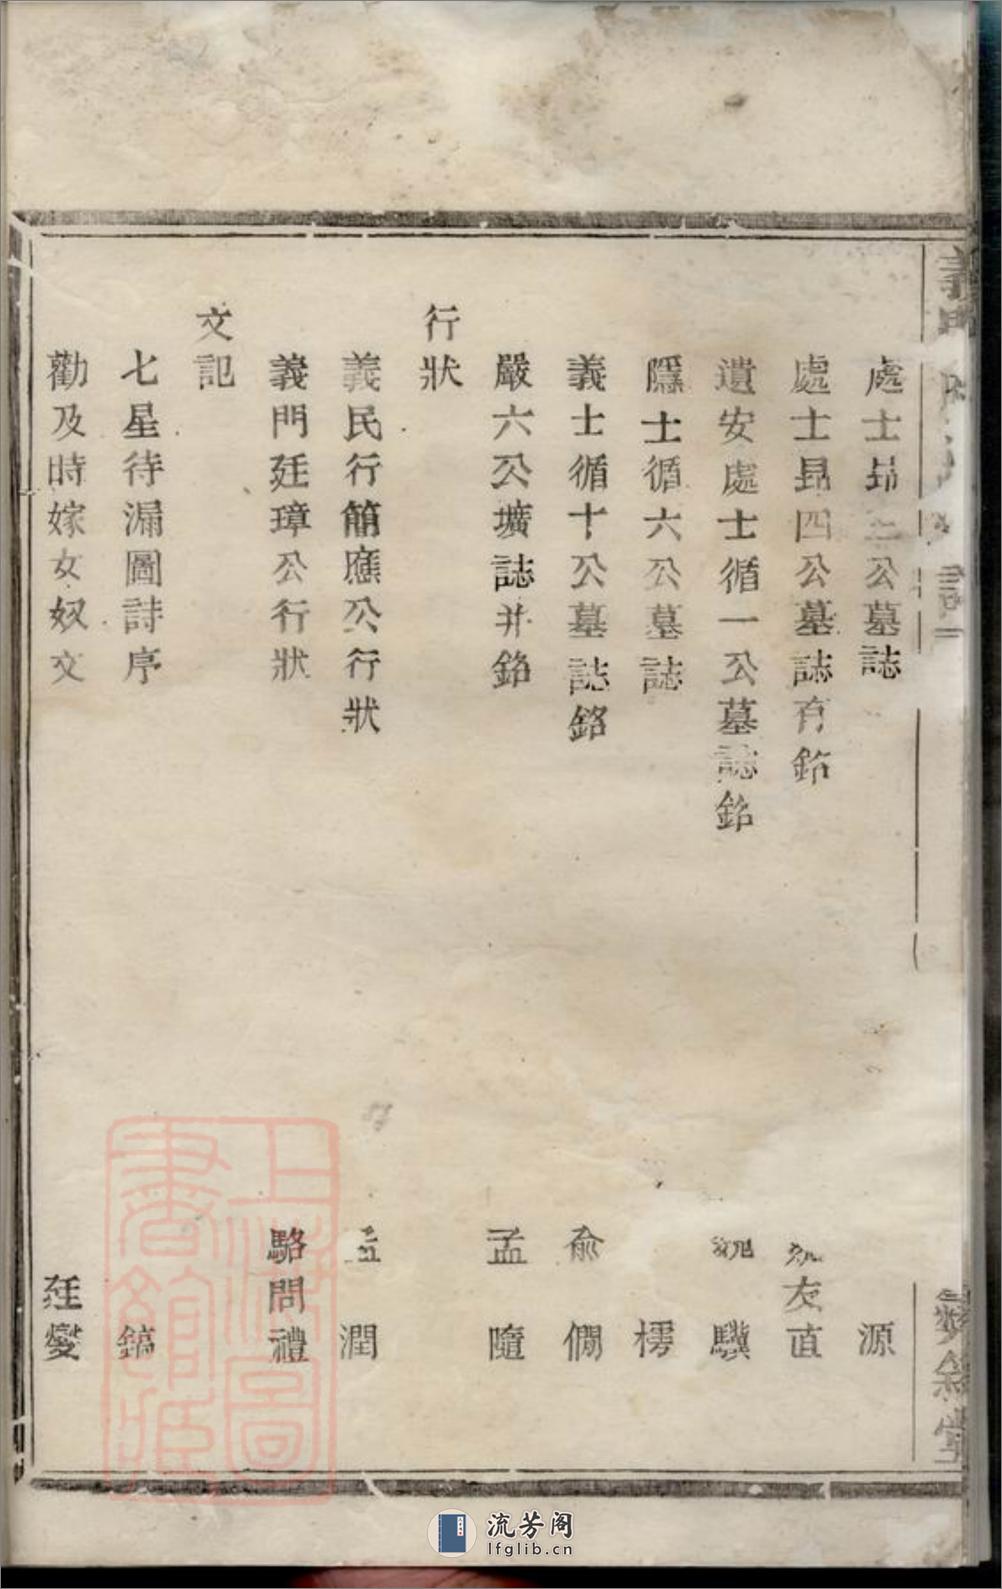 處士昻公墓誌 源
處士昻四公墓誌有銘 友直
遺安處士循一公墓誌銘 驥
隱士循六公墓誌 樗
義士循十公墓誌銘 俞僩
嚴六公壙誌并銘 孟隨
行狀
義民行簡應公行狀 孟潤
義門廷璋公行狀 駱問禮
文記
七星待漏圖詩序 鎬
勸及時嫁女奴文 廷燮
義門
敘倫堂
上海圖書館藏
流芳阁
lfglib.cn